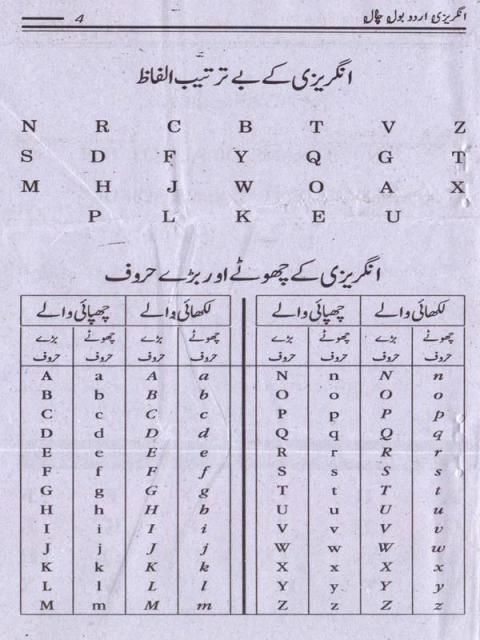 انگریزی اردو بول چال 4
انگریزی کے بے ترتیب الفاظ
N R C B T V Z
S D F Y Q G T
M H J W O A X
P L K E U
انگریزی کے چھوٹے اور بڑے حروف
چھپائی والے لکھائی والے چھپائی والے لکھائی والے
بڑے چھوٹے بڑے چھوٹے بڑے چھوٹے بڑے چھوٹے
حروف حروف حروف حروف حروف حروف حروف حروف
A a A a N n N n
B b B b O o O o
C c C c P p P p
D d D d Q q Q q
E e E e R r R r
F f F f S s S s
G g G g T t T t
H h H h U u U u
I i I i V v V v
J j J j W w W w
K k K k X x X x
L l L l Y y Y y
M m M m Z z Z z